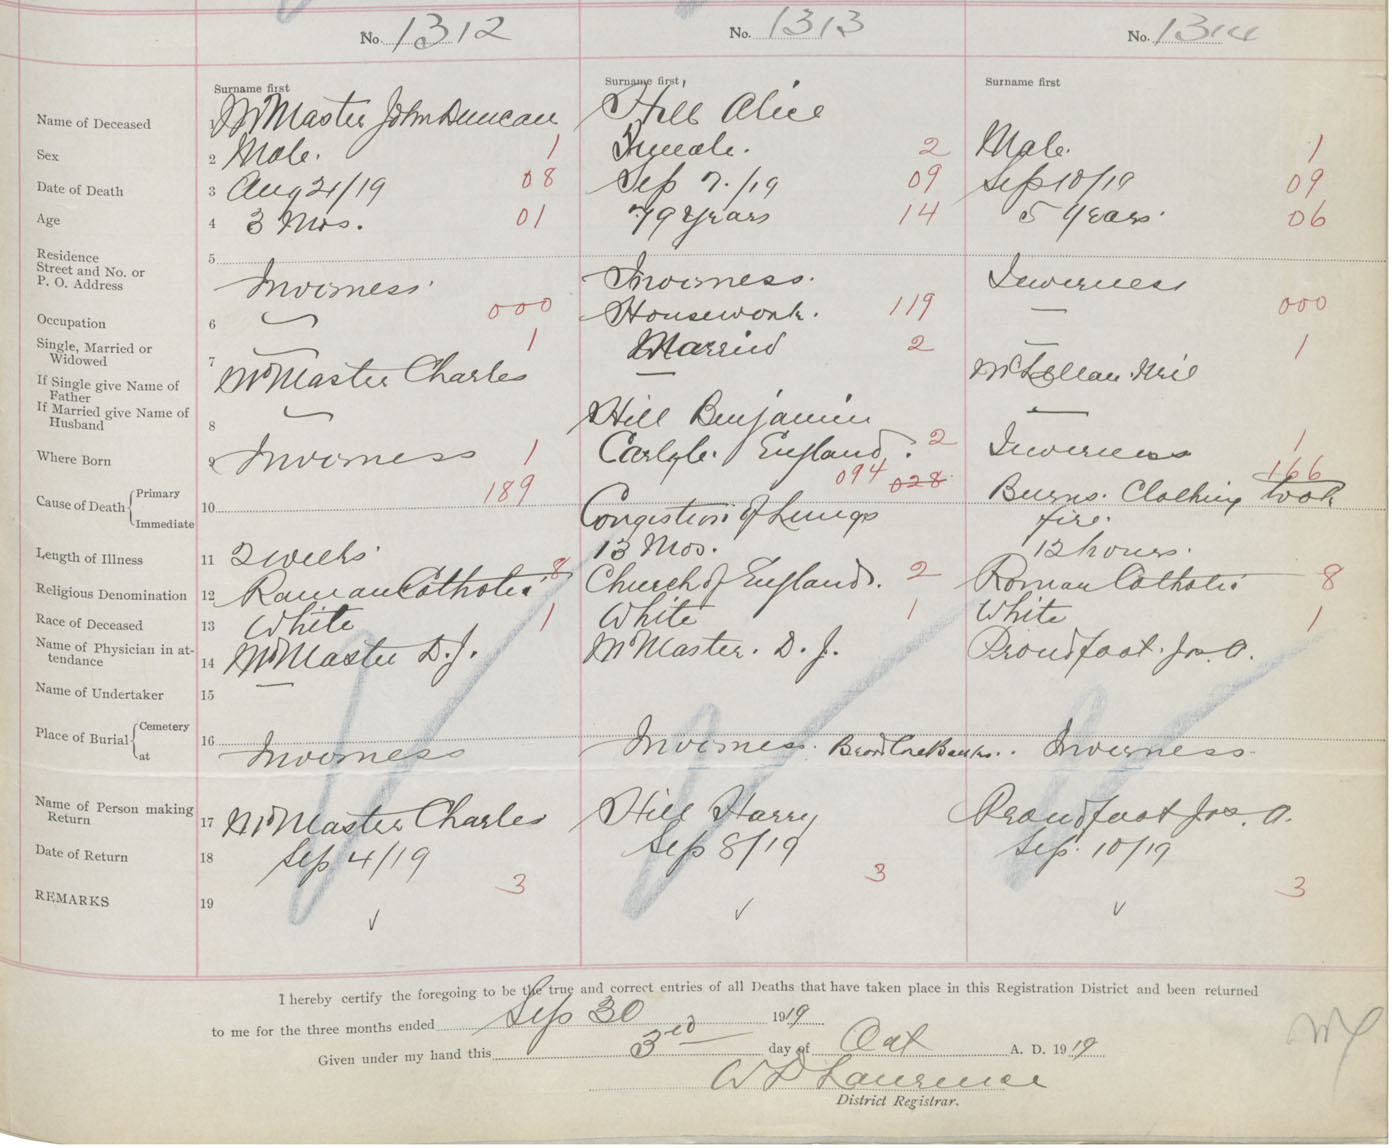 No. 1312 No. 1313 No. 1314
Surname first Surname first Surname first
Name of Deceased 1 McMaster John Duncan Hill Alice
Sex 2 Male. 1 Female. 2 Male. 1
Date of Death 3 Aug 21/19 08 Sep 7./19 09 Sep 10/19 09
Age 4 3 Mos. 01 79 Years 14 5 Years. 06
Residence
Street and No. or
P. O. Address 5 Inverness Inverness. Inverness
Occupation 6 000 Housework. 119 — 000
Single, Married or
Widowed 7 1 Married 2 1
If Single give Name of
Father McMaster Charles — McLellan Neil
If Married give Name of
Husband 8 Hill Benjamin —
Where Born 9 Inverness 1 Carlyle England. 2 Inverness 1
189 094 028 166
Cause of Death { Primary
Immediate 10 Congestion of Lungs Burns. Clothing took
fire.
Length of Illness 11 2 weeks 13 Mos. 12 hours.
Religious Denomination 12 Roman Catholic 8 Church of England. 2 Roman Catholic 8
Race of Deceased 13 White 1 White 1 White 1
Name of Physician in at-
tendance 14 McMaster D.J. McMaster. D. J. Proudfoot. Jas. A.
Name of Undertaker 15 —
Place of Burial { Cemetery
at 16 Inverness Inverness. Broad Cove Banks.. Inverness
Name of Person making
Return 17 McMaster Charles Hill Harry Proudfoot Jas. A.
Date of Return 18 Sep 4/19 Sep 8/19 Sep. 10/19
3 3 3
REMARKS 19 ✓ ✓ ✓
I hereby certify the foregoing to be the true and correct entries of all Deaths that have taken place in this Registration District and been returned
to me for the three months ended Sep 30 1919
Given under my hand this 3rd day of Oct A. D. 1919
W D Lawrence
District Registrar.